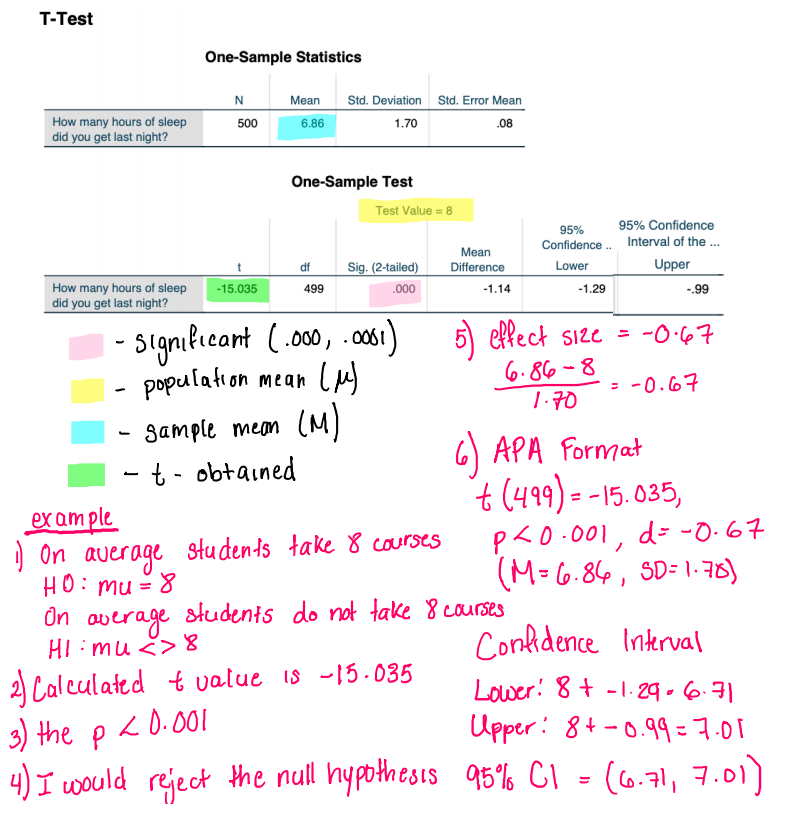 T-Test
One-Sample Statistics
N Mean Std. Deviation Std. Error Mean
How many hours of sleep did you get last night? 500 6.86 1.70 .08
One-Sample Test
Test Value = 8
t df Sig. (2-tailed) Mean Difference 95% Confidence .. Lower 95% Confidence Interval of the ... Upper
How many hours of sleep did you get last night? -15.035 499 .000 -1.14 -1.29 -.99
- significant (.000, .0001)
- population mean (μ)
- sample mean (M)
- t - obtained
example
1) On average students take 8 courses
H0: mu = 8
On average students do not take 8 courses
H1: mu <> 8
2) Calculated t value is -15.035
3) the p < 0.001
4) I would reject the null hypothesis
5) effect size = -0.67
6.86 - 8
1.70
= -0.67
6) APA Format
t (499) = -15.035,
p < 0.001, d = -0.67
(M = 6.86, SD = 1.70)
Confidence Interval
Lower: 8 + -1.29 = 6.71
Upper: 8 + -0.99 = 7.01
95% CI = (6.71, 7.01)